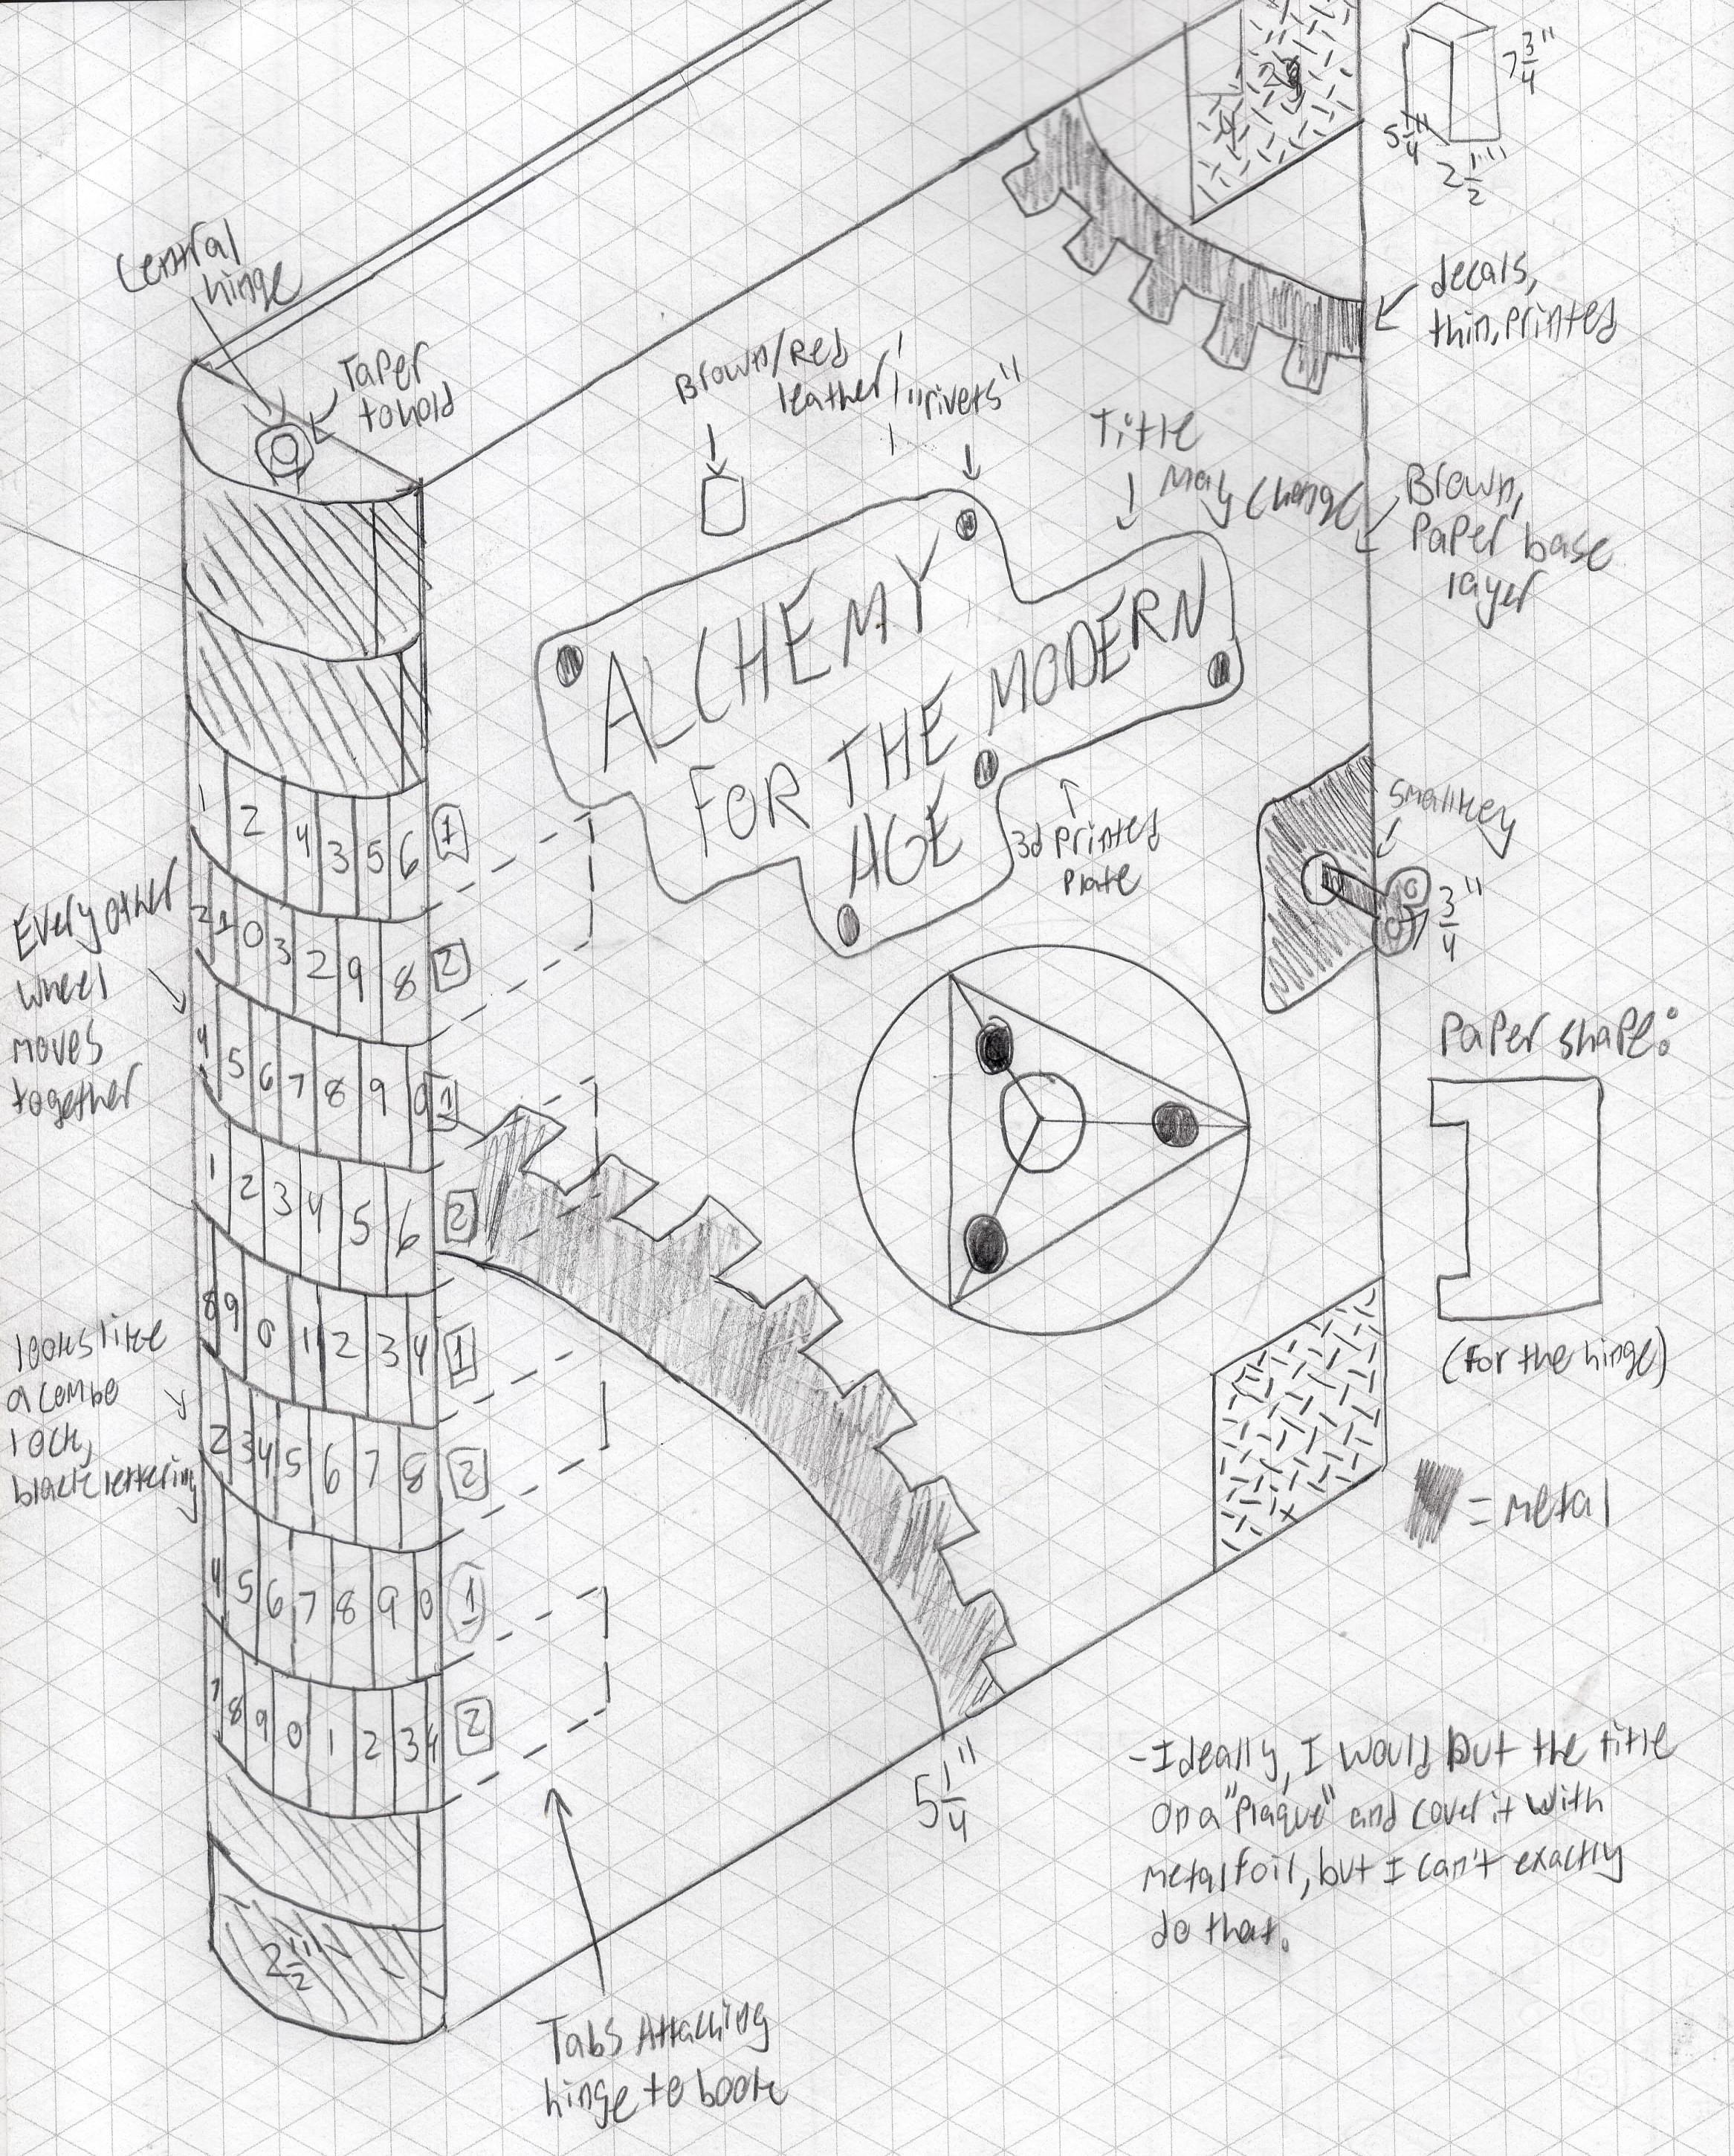 7 3/4"
5 1/4"
2 1/2"
Central
hinge
Taper
to hold
Brown/Red
leather
"rivets"
decals,
thin, printed
Title
May Change
Brown,
Paper base
layer
ALCHEMY
FOR THE MODERN
AGE
3d printed
Plate
small key
3/4"
1 2 4 3 5 6 1
2 1 0 3 2 9 8 2
4 5 6 7 8 9 0 1
1 2 3 4 5 6 2
8 9 0 1 2 3 4 1
2 3 4 5 6 7 8 2
4 5 6 7 8 9 0 1
7 8 9 0 1 2 3 4 2
Every other
wheel
moves
together
looks like
a combo
lock,
black lettering
Paper shape:
(for the hinge)
= metal
5 1/4"
2 1/2"
Tabs Attaching
hinge to book
-Ideally, I would put the title
on a "Plaque" and cover it with
metal foil, but I can't exactly
do that.